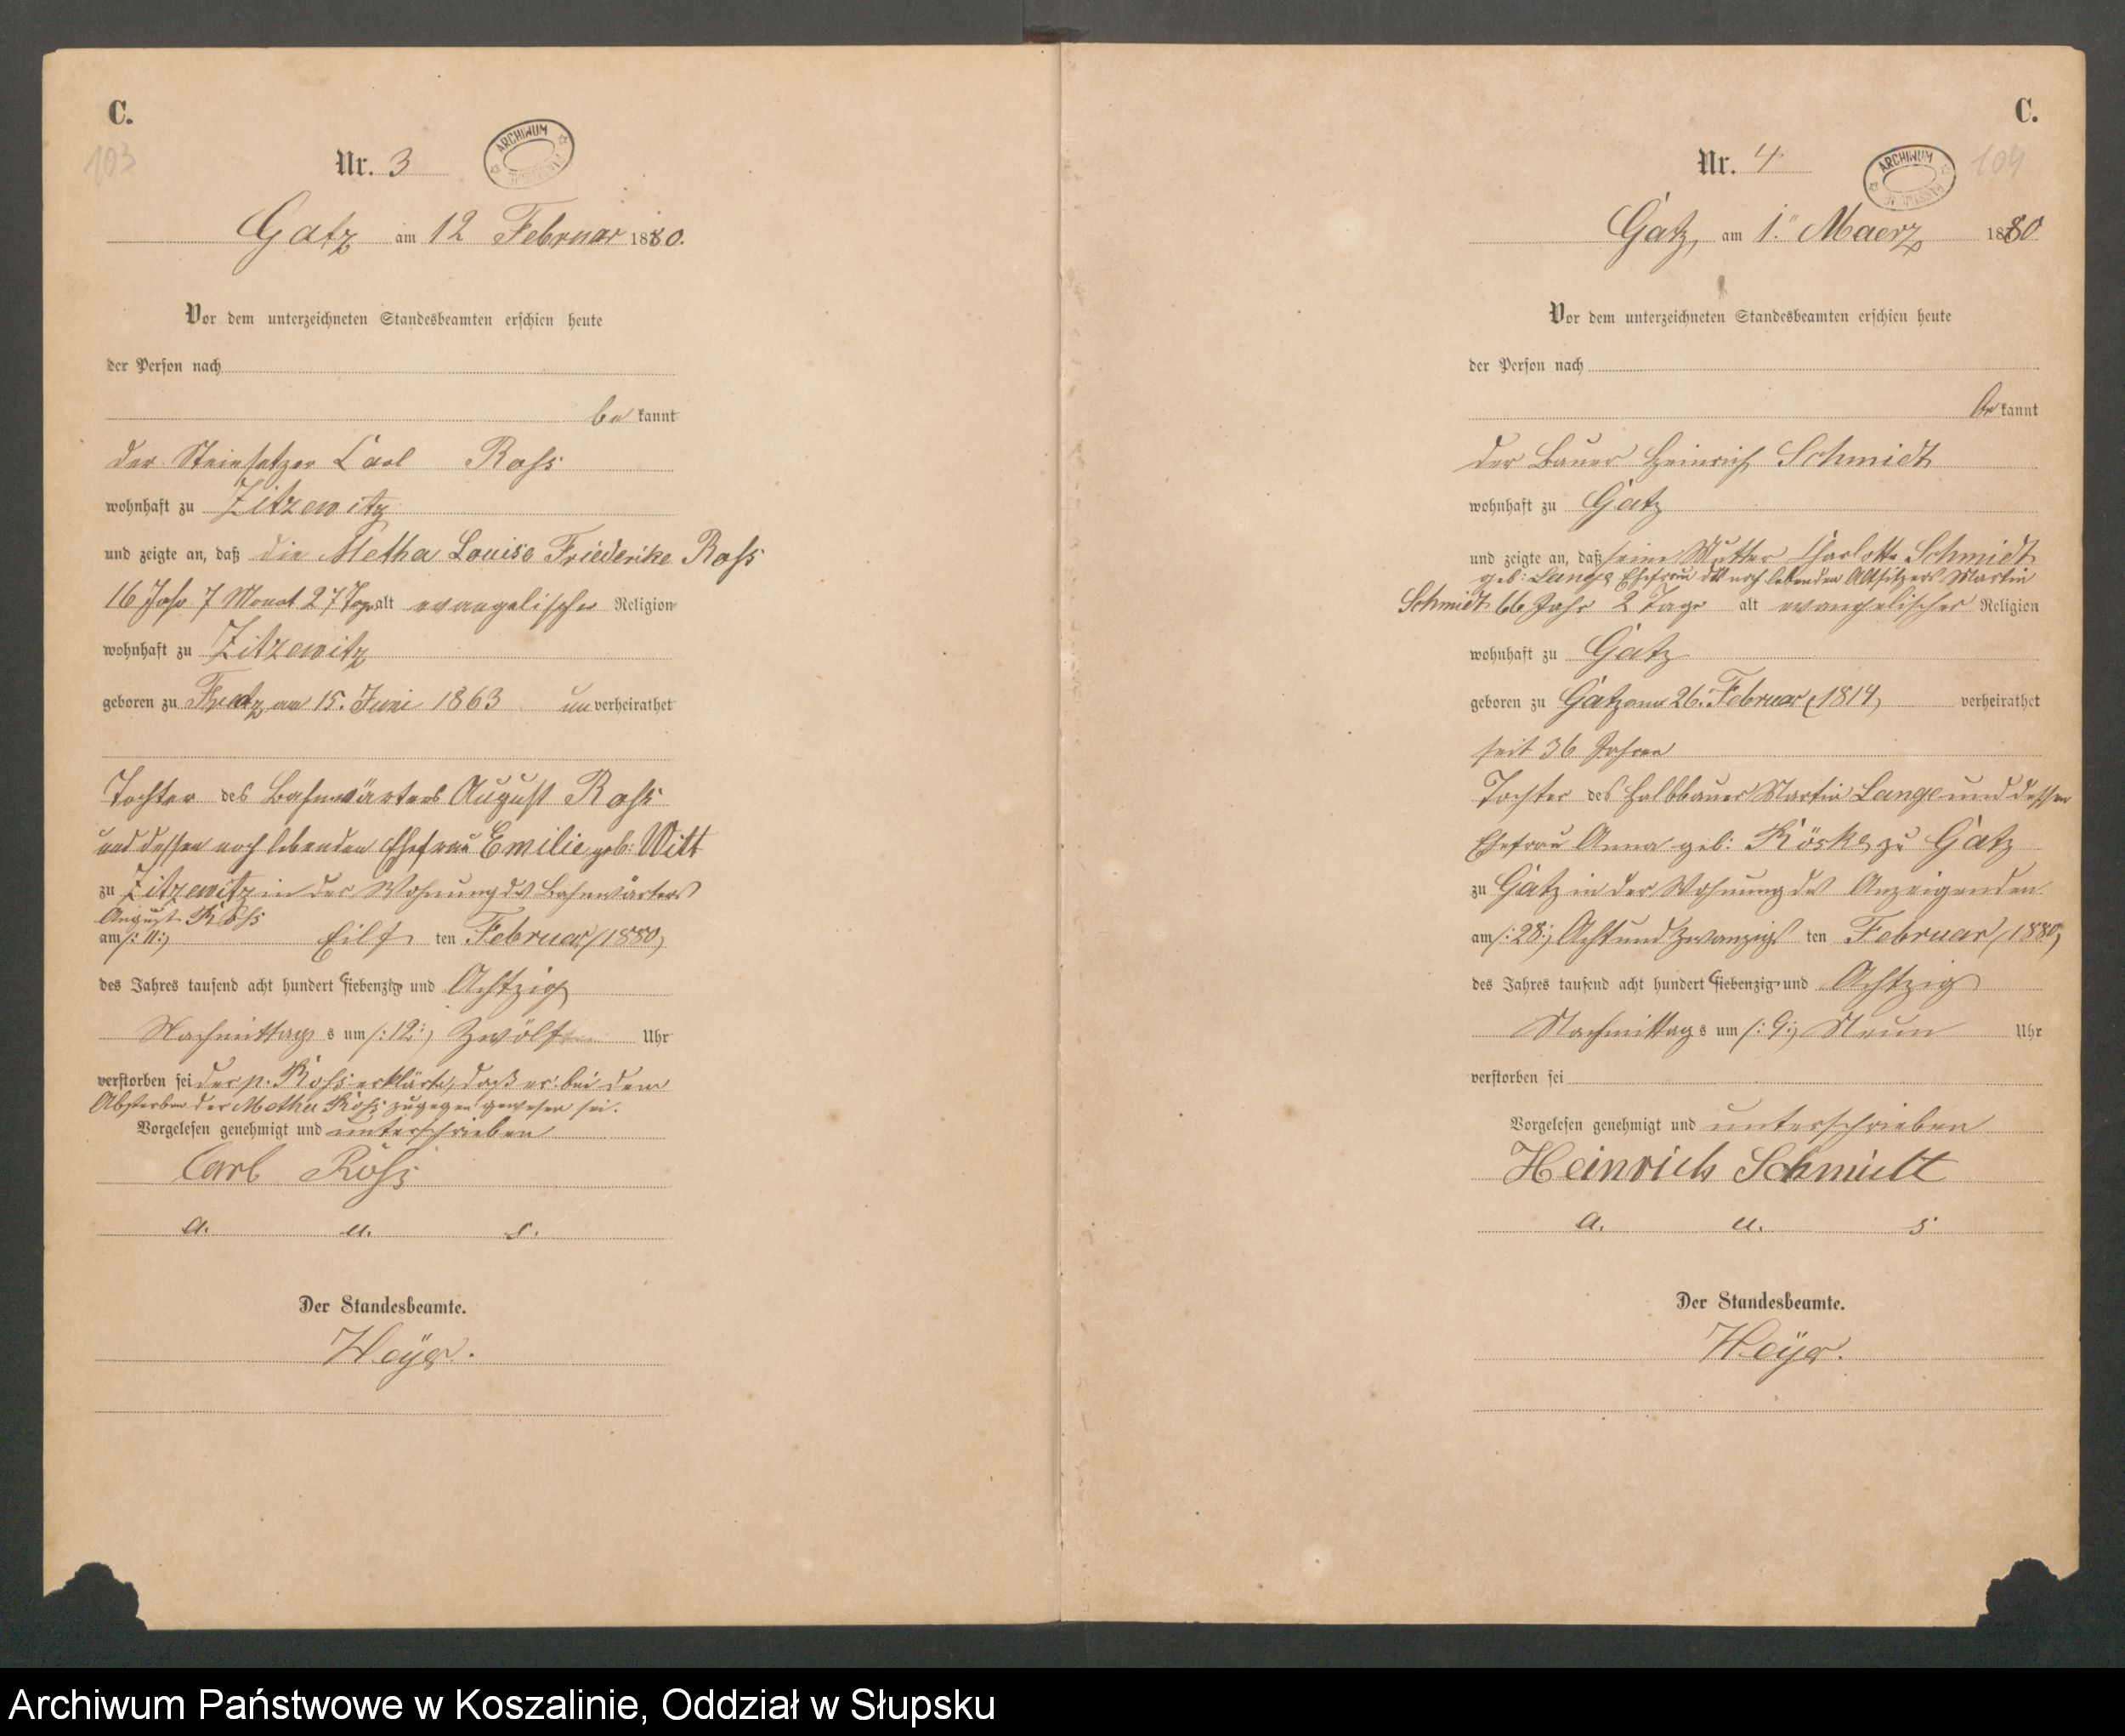 C.
103
Nr. 3
ARCHIWUM
Gatz am 12 Februar 1880.
Vor dem unterzeichneten Standesbeamten erschien heute
der Person nach
be kannt
der Steinsetzer Carl Ross
wohnhaft zu Zitzewitz
und zeigte an, daß die Metha Louise Friederike Ross
16 Jahr 7 Monat 27 Tage alt evangelischer Religion
wohnhaft zu Zitzewitz
geboren zu am 15. Juni 1863 un verheirathet
Tochter des Bahnwärters August Ross
und dessen noch lebenden Ehefrau Emilie geb: Witt
zu Zitzewitz in der Wohnung des Bahnwärters
August Ross
am /: 11 :/ Eilf ten Februar /1880/
des Jahres tausend acht hundert siebenzig und Achtzig
Nachmittags um /: 12 :/ Zwölf Uhr
verstorben sei der p. Ross erklärte, daß er bei dem
Absterben der Metha Ross zugegen gewesen sei.
Vorgelesen genehmigt und unterschrieben
Carl Ross
a. u. s.
Der Standesbeamte.
Heyer.
C.
104
Nr. 4
ARCHIWUM
Gatz, am 1. Maerz 1880
Vor dem unterzeichneten Standesbeamten erschien heute
der Person nach
be kannt
der Bauer Heinrich Schmidt
wohnhaft zu Gatz
und zeigte an, daß seine Mutter Charlotte Schmidt
geb: Lange Ehefrau des noch lebenden Altsitzers Martin
Schmidt 66 Jahr 2 Tage alt evangelischer Religion
wohnhaft zu Gatz
geboren zu Gatz am 26. Februar /1814/ verheirathet
seit 36 Jahren
Tochter des Halbbauer Martin Lange und dessen
Ehefrau Anna geb: Röske zu Gatz
zu Gatz in der Wohnung des Anzeigenden
am /: 28 :/ Acht und zwanzigst ten Februar /1880/
des Jahres tausend acht hundert siebenzig und Achtzig
Nachmittags um /: 9 :/ Neun Uhr
verstorben sei
Vorgelesen genehmigt und unterschrieben
Heinrich Schmidt
a. u. s
Der Standesbeamte.
Heyer.
Archiwum Państwowe w Koszalinie, Oddział w Słupsku